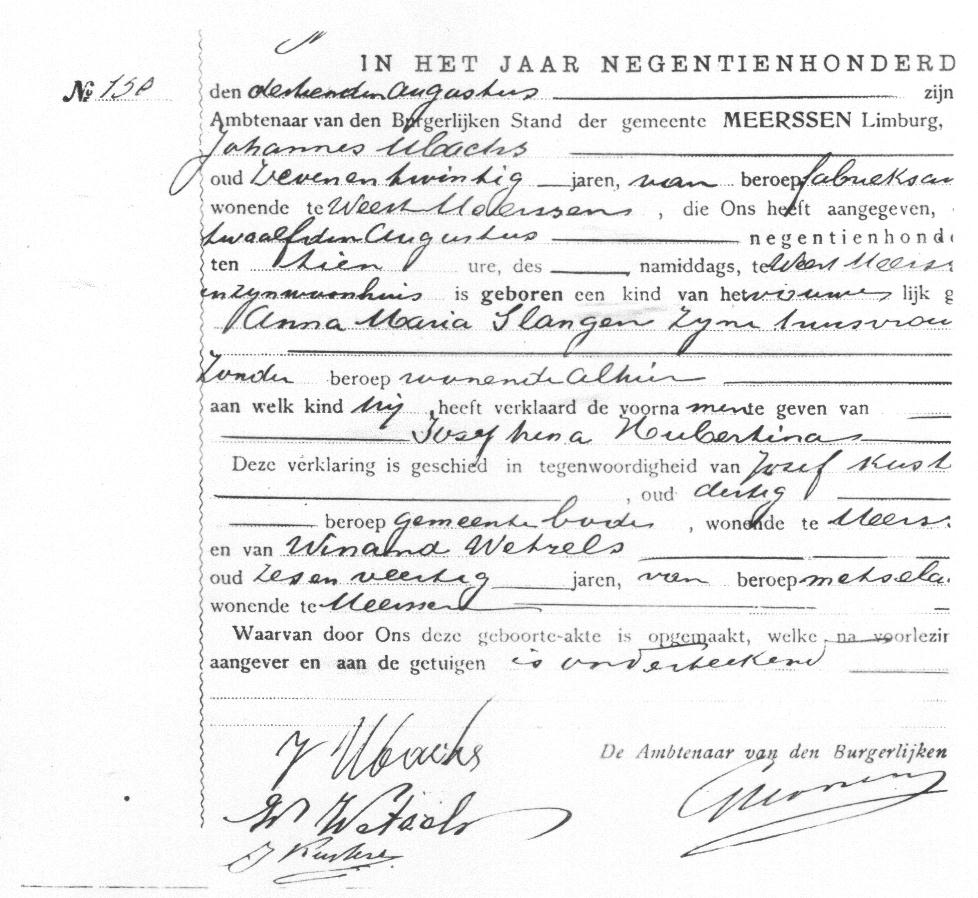 IN HET JAAR NEGENTIENHONDERD
No 150
den dertienden Augustus zijn
Ambtenaar van den Burgerlijken Stand der gemeente MEERSSEN Limburg,
Johannes Ubachs
oud Zevenentwintig jaren, van beroep fabrieksar
wonende te Weert Meerssen, die Ons heeft aangegeven,
twaalfden Augustus negentienhonde
ten tien ure, des namiddags, te Weert Meerss
in zijn woonhuis is geboren een kind van het vrouwe lijk g
Anna Maria Slangen zijne huisvrou
Zonder beroep wonende alhier
aan welk kind hij heeft verklaard de voorna mente geven van
Josephina Hubertina
Deze verklaring is geschied in tegenwoordigheid van Josef Kust
, oud dertig
beroep gemeentebode, wonende te Meers
en van Winand Wetzels
oud Zesenveertig jaren, van beroep metsela
wonende te Meerssen
Waarvan door Ons deze geboorte-akte is opgemaakt, welke na voorlezin
aangever en aan de getuigen is onderteekend
J Ubachs
De Ambtenaar van den Burgerlijken
W Wetzels
J Kusters